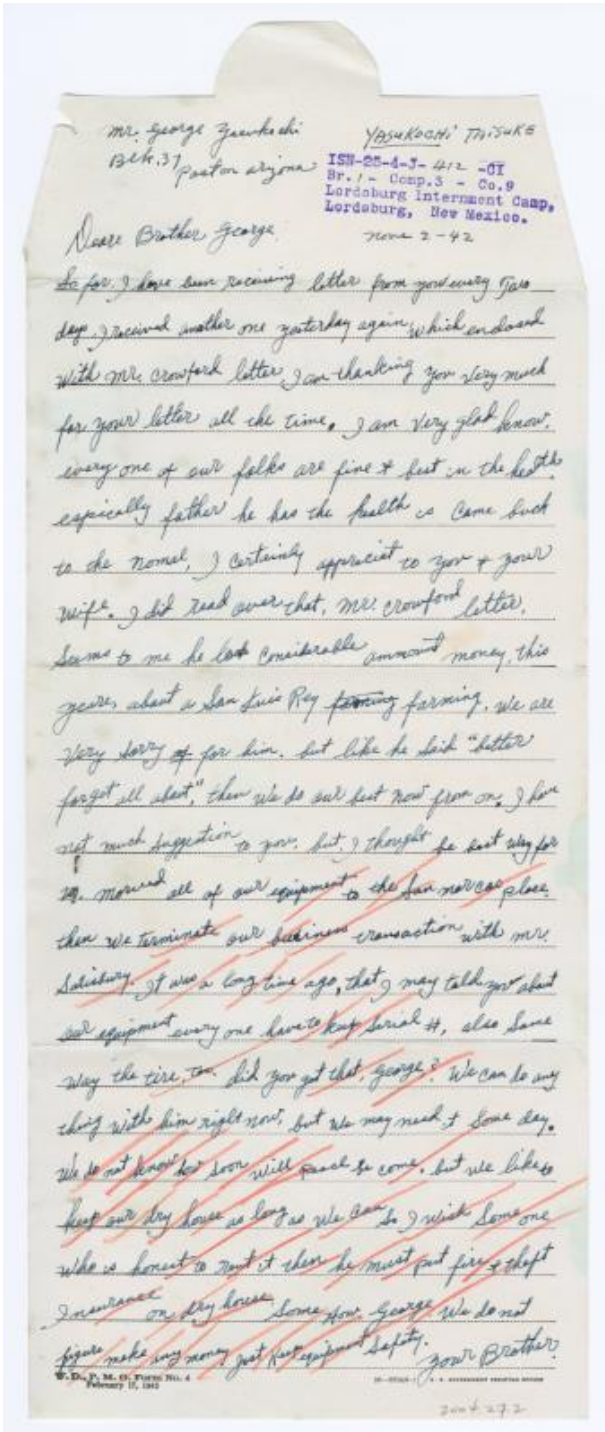 Mr. George Yasukochi
YASUKOCHI TAISUKE
Blk. 37
Poston Arizona
ISN-25-4-J- 412 -CI
Br. 1 - Comp.3 - Co.9
Lordsburg Internment Camp,
Lordsburg, New Mexico.
Nove 2-42
Deare Brother George
So for, I have been receiving letter from you every Two
days. I received another one yesterday again, which enclosed
With Mr. Crowford letter, I am thanking you Very much
for your letter all the time. I am Very glad know.
every one of our folks are fine & best in the health
espically father he has the health is Came back
to the nomel, I Certainly appreciat to you & your
Wife. I did read over that, Mr. Crowford letter.
Seems to me he lost Considerable ammount money, this
yeares about a San Luis Rey farming. We are
Very Sorry for him. but like he Said "better
forget all about", then We do our best now from on. I have
not much Suggestion to you, but, I thought be best way for
us. moved all of our equipment to the San Marcos place.
then We terminate our business transaction with Mr.
Salisbury. It was a long time ago, that I may told you about
our equipment every one have to keep Serial #, also Same
Way the tire, too. did you get that, George? We can do any
thing with him right now, but We may need it Some day.
We do not know how Soon Will peace be come. but we like to
keep our dry house as long as We Can So I wish Some one
Who is honest to rent it then he must put fire & theft
Insurance on dry house Some How. George We do not
figure make any money just Keep equipment Safety.
your Brother.
W. D., P. M. O. Form No. 4
February 17, 1942
U. S. GOVERNMENT PRINTING OFFICE
2004.27.2